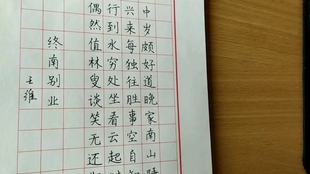 中岁颇好道晚家南山陲
兴来每独往胜事空自知
行到水穷处坐看云起
偶然值林叟谈笑无还
终南别业
王维